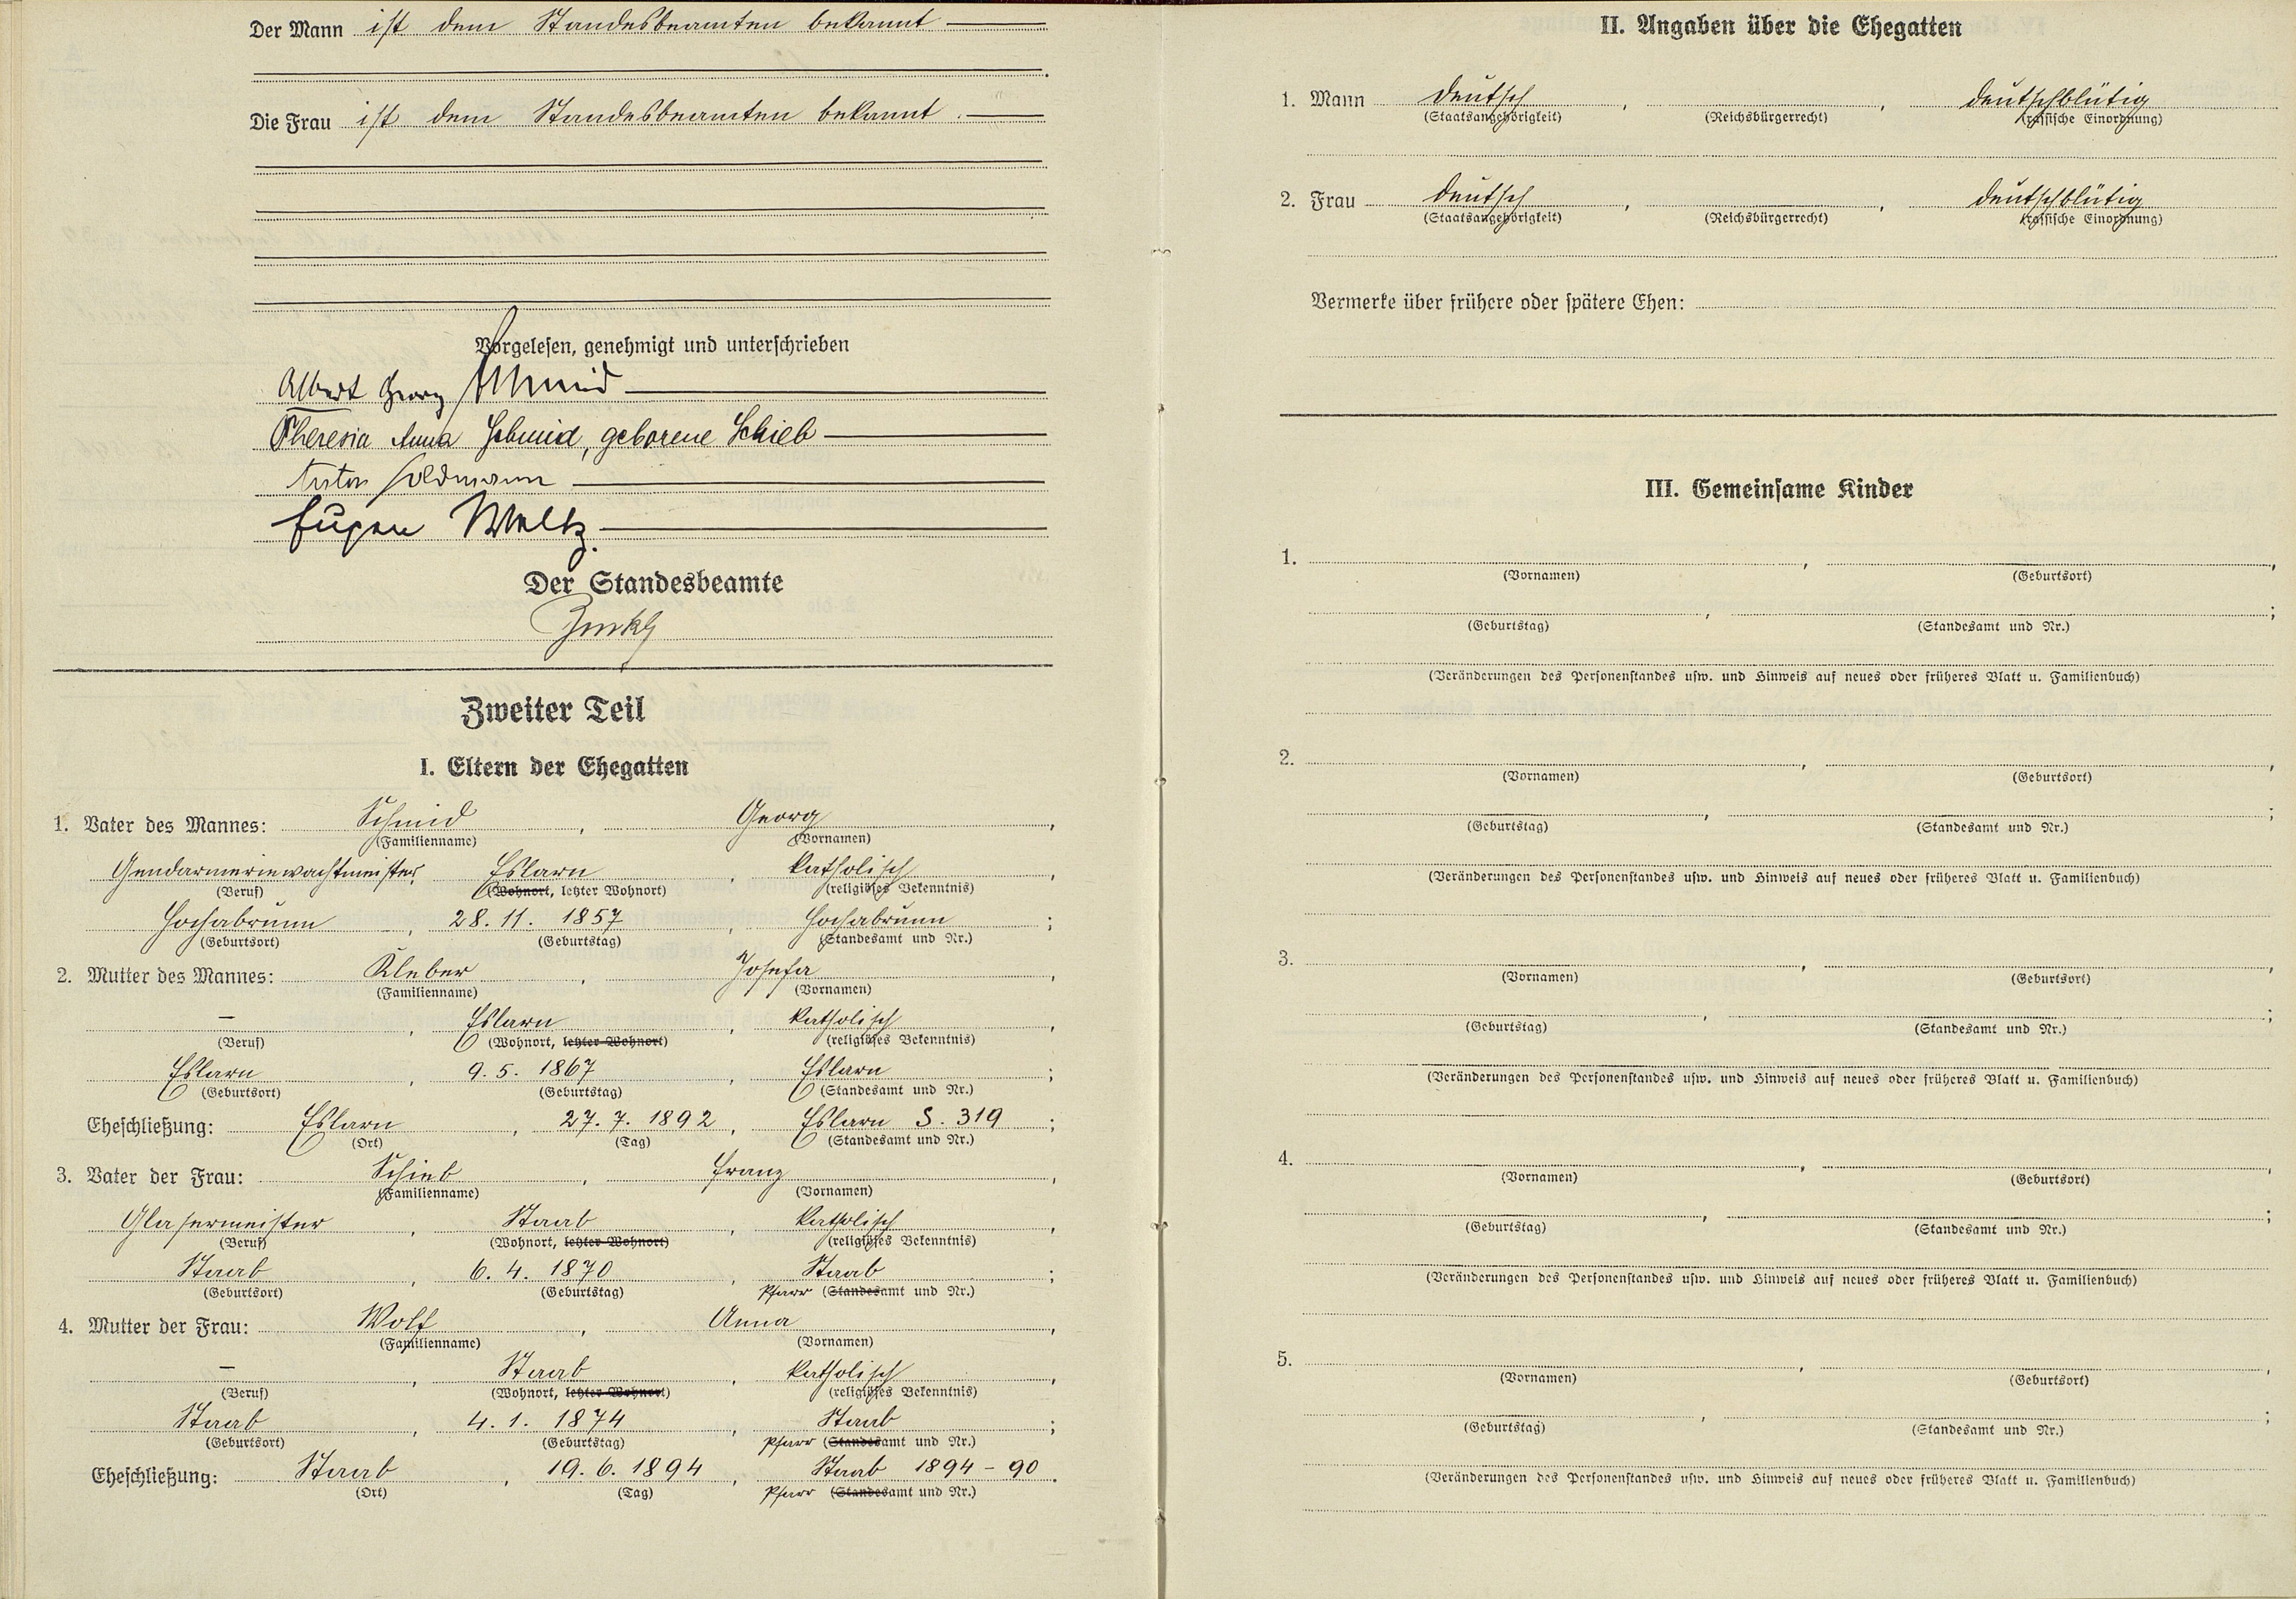 Der Mann ist dem Standesbeamten bekannt
Die Frau ist dem Standesbeamten bekannt.
Vorgelesen, genehmigt und unterschrieben
Albert Georg Schmid
Theresia Anna Schmid, geborene Schieb
Anton Feldmann
Eugen Weltz.
Der Standesbeamte
Zweiter Teil
I. Eltern der Ehegatten
1. Vater des Mannes: Schmid, Georg,
(Familienname) (Vornamen)
Gendarmeriewachtmeister, Eslarn, katholisch,
(Beruf) (Wohnort, letzter Wohnort) (religiöses Bekenntnis)
Hochabrunn, 28. 11. 1857, Hochabrunn;
(Geburtsort) (Geburtstag) (Standesamt und Nr.)
2. Mutter des Mannes: Kleber, Josefa,
(Familienname) (Vornamen)
—, Eslarn, katholisch,
(Beruf) (Wohnort, letzter Wohnort) (religiöses Bekenntnis)
Eslarn, 9. 5. 1867, Eslarn;
(Geburtsort) (Geburtstag) (Standesamt und Nr.)
Eheschließung: Eslarn, 27. 7. 1892, Eslarn S. 319;
(Ort) (Tag) (Standesamt und Nr.)
3. Vater der Frau: Schieb, Franz,
(Familienname) (Vornamen)
Glasermeister, Staab, katholisch,
(Beruf) (Wohnort, letzter Wohnort) (religiöses Bekenntnis)
Staab, 6. 4. 1870, Staab;
(Geburtsort) (Geburtstag) Pfarr (Standesamt und Nr.)
4. Mutter der Frau: Wolf, Anna,
(Familienname) (Vornamen)
—, Staab, katholisch,
(Beruf) (Wohnort, letzter Wohnort) (religiöses Bekenntnis)
Staab, 4. 1. 1874, Staab;
(Geburtsort) (Geburtstag) Pfarr (Standesamt und Nr.)
Eheschließung: Staab, 19. 6. 1894, Staab 1894 - 90.
(Ort) (Tag) Pfarr (Standesamt und Nr.)
II. Angaben über die Ehegatten
1. Mann deutsch, , deutschblütig
(Staatsangehörigkeit) (Reichsbürgerrecht) (rassische Einordnung)
2. Frau deutsch, , deutschblütig
(Staatsangehörigkeit) (Reichsbürgerrecht) (rassische Einordnung)
Vermerke über frühere oder spätere Ehen:
III. Gemeinsame Kinder
1. , ,
(Vornamen) (Geburtsort)
, ;
(Geburtstag) (Standesamt und Nr.)
(Veränderungen des Personenstandes usw. und Hinweis auf neues oder früheres Blatt u. Familienbuch)
2. , ,
(Vornamen) (Geburtsort)
, ;
(Geburtstag) (Standesamt und Nr.)
(Veränderungen des Personenstandes usw. und Hinweis auf neues oder früheres Blatt u. Familienbuch)
3. , ,
(Vornamen) (Geburtsort)
, ;
(Geburtstag) (Standesamt und Nr.)
(Veränderungen des Personenstandes usw. und Hinweis auf neues oder früheres Blatt u. Familienbuch)
4. , ,
(Vornamen) (Geburtsort)
, ;
(Geburtstag) (Standesamt und Nr.)
(Veränderungen des Personenstandes usw. und Hinweis auf neues oder früheres Blatt u. Familienbuch)
5. , ,
(Vornamen) (Geburtsort)
, ;
(Geburtstag) (Standesamt und Nr.)
(Veränderungen des Personenstandes usw. und Hinweis auf neues oder früheres Blatt u. Familienbuch)